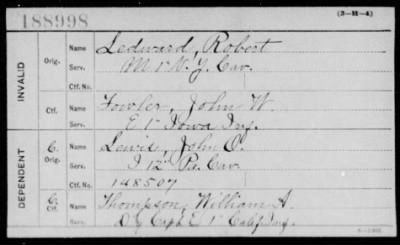 188998
(3-H-4)
INVALID
Orig.
Name Ledward, Robert
Serv. M 1" N.Y. Cav.
Ctf. No.
Ctf.
Name Fowler, John W.
Serv. E 1" Iowa Inf.
DEPENDENT
C.
Orig.
Name Lewis, John O.
Serv. I 12" Pa. Cav.
Ctf. No. 148507
C.
Ctf.
Name Thompson, William A.
Serv. Capt. E 1" Calif. Inf.